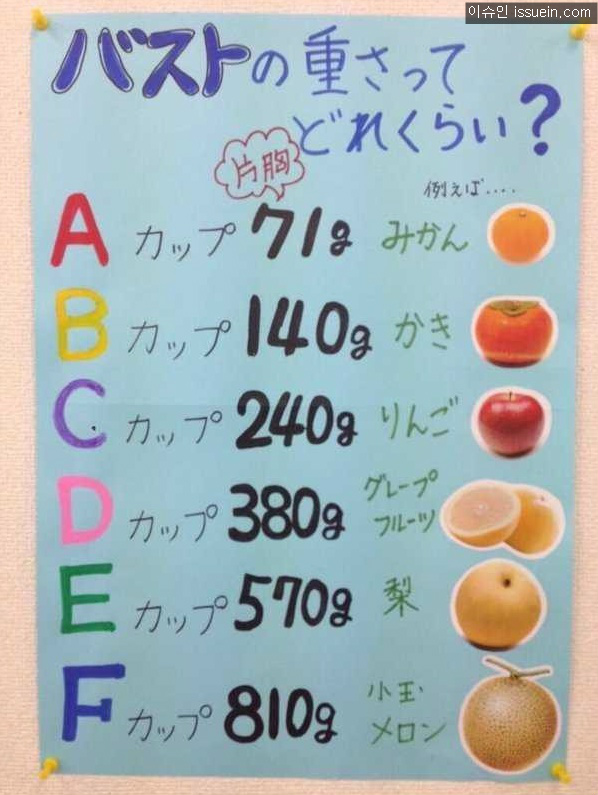 이슈인 issuein.com
バストの重さって
どれくらい?
片胸
例えば....
A カップ 71g みかん
B カップ 140g かき
C カップ 240g りんご
D カップ 380g グレープ
フルーツ
E カップ 570g 梨
F カップ 810g 小玉
メロン